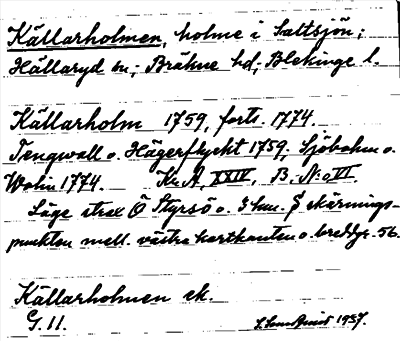 Källarholmen, holme i Saltsjön;
Hällaryd sn; Bräkne hd; Blekinge l.
Källarholm 1759, forts. 1774.
Tengwall o. Hägerflycht 1759, Sjöbohm o.
Wohn 1774. Kr. A, XXIV, B, N:o VI.
Läge strax Ö Styrsö o. 3 km. S skärnings-
punkten mell. västra kartkanten o. breddgr. 56.
Källarholmen ek.
G. 11. 1937.